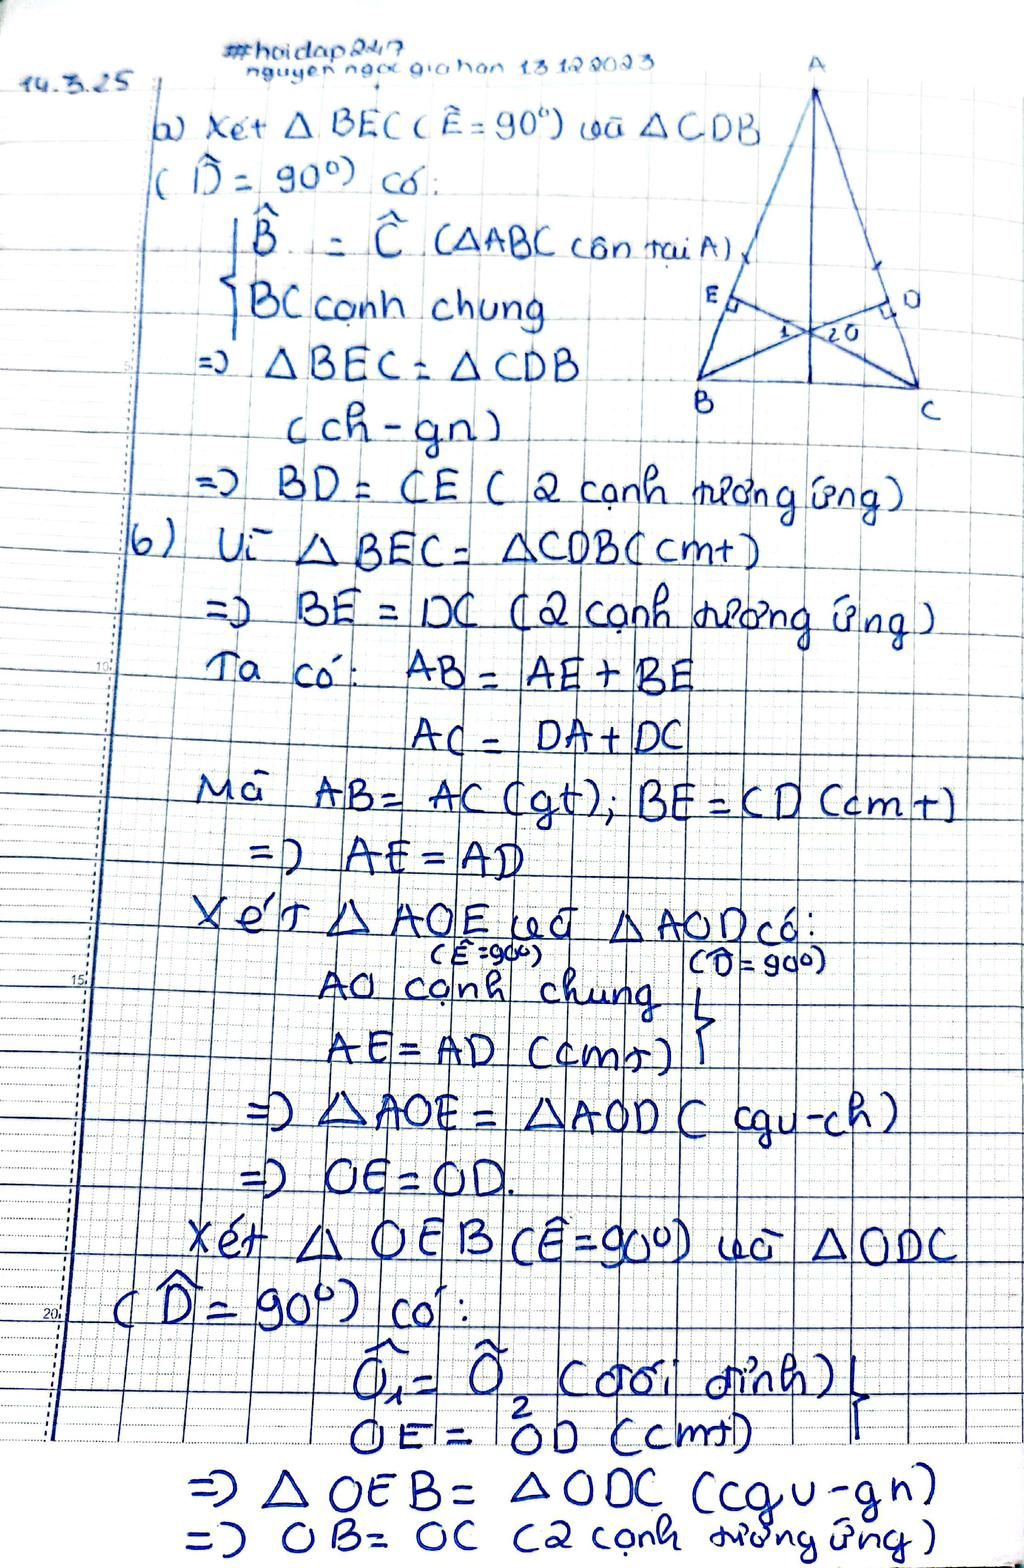 #hoidap247
nguyen ngoc gia han 13122023
14.3.25
a) Xét △ BEC ( Ê = 90°) và △ CDB
( D̂ = 90°) có:
B̂ = Ĉ (△ABC cân tại A)
BC cạnh chung
=> △ BEC = △ CDB
( ch - gn )
=> BD = CE ( 2 cạnh tương ứng )
b) Vì △ BEC = △CDB ( cmt )
=> BE = DC ( 2 cạnh tương ứng )
Ta có: AB = AE + BE
AC = DA + DC
Mà AB = AC (gt); BE = CD (cmt)
=> AE = AD
Xét △ AOE và △ AOD có:
( Ê = 90°) ( D̂ = 90°)
AO cạnh chung
AE = AD (cmt)
=> △AOE = △AOD ( cgv-ch )
=> OE = OD.
Xét △ OEB (Ê = 90°) và △ ODC
( D̂ = 90°) có:
Ô₁ = Ô₂ (đối đỉnh)
OE = OD (cmt)
=> △ OEB = △ ODC (cgv-gn)
=> OB = OC (2 cạnh tương ứng)
A
E
D
1
2
O
B
C
10
15
20